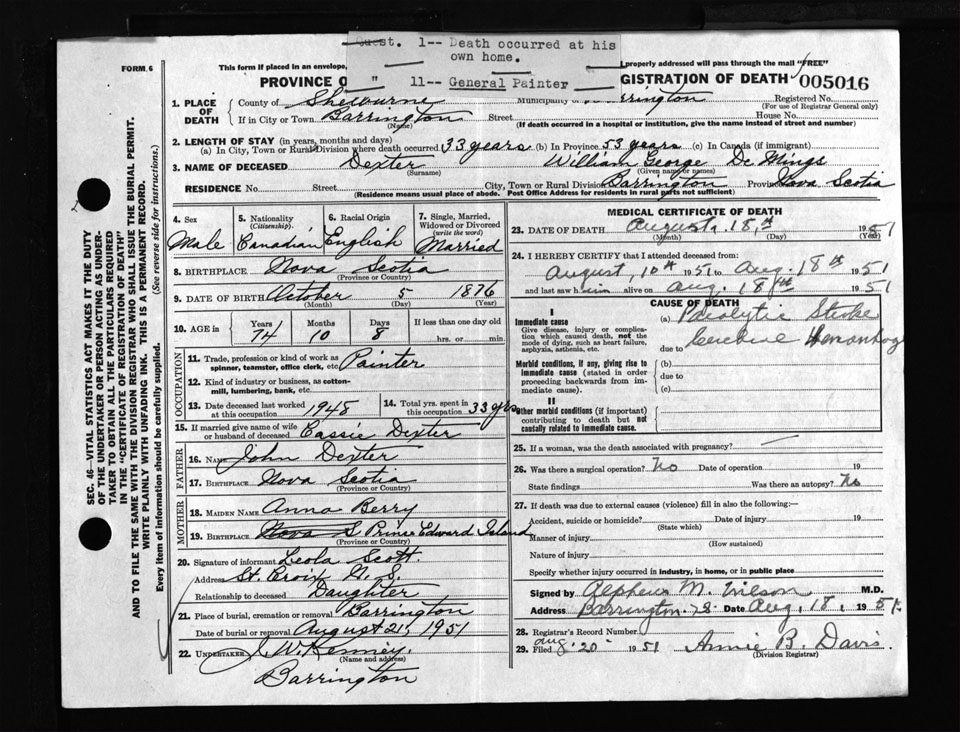 Quest. 1-- Death occurred at his
own home.
" 11-- General Painter
FORM 6
This form if placed in an envelope, properly addressed will pass through the mail "FREE"
PROVINCE O GISTRATION OF DEATH 005016
1. PLACE OF DEATH
County of Shelburne Municipality Barrington Registered No.
(For use of Registrar General only)
If in City or Town Barrington Street House No.
(Name) (If death occurred in a hospital or institution, give the name instead of street and number)
2. LENGTH OF STAY (in years, months and days)
(a) In City, Town or Rural Division where death occurred 33 years (b) In Province 53 years (c) In Canada (if immigrant)
3. NAME OF DECEASED Dexter William George De Mings
(Surname) (Given name or names)
RESIDENCE No. Street City, Town or Rural Division Barrington Province Nova Scotia
(Residence means usual place of abode. Post Office Address for residents in rural parts not sufficient)
4. Sex Male
5. Nationality (Citizenship). Canadian
6. Racial Origin English
7. Single, Married, Widowed or Divorced (write the word) Married
8. BIRTHPLACE Nova Scotia
(Province or Country)
9. DATE OF BIRTH October 5 1876
(Month) (Day) (Year)
10. AGE in Years Months Days If less than one day old
74 10 8 hrs. or min.
OCCUPATION
11. Trade, profession or kind of work as spinner, teamster, office clerk, etc Painter
12. Kind of industry or business, as cotton-mill, lumbering, bank, etc.
13. Date deceased last worked at this occupation 1948
14. Total yrs. spent in this occupation 33 yrs
15. If married give name of wife or husband of deceased Cassie Dexter
FATHER
16. NAME John Dexter
17. BIRTHPLACE Nova Scotia
(Province or Country)
MOTHER
18. MAIDEN NAME Anna Berry
19. BIRTHPLACE Nova S Prince Edward Island
(Province or Country)
20. Signature of informant Leola Scott
Address St. Croix N. S.
Relationship to deceased Daughter
21. Place of burial, cremation or removal Barrington
Date of burial or removal August 21, 1951
22. UNDERTAKER J. W. Kenney.
(Name and address)
Barrington
MEDICAL CERTIFICATE OF DEATH
23. DATE OF DEATH August 18th 1951
(Month) (Day) (Year)
24. I HEREBY CERTIFY that I attended deceased from:
August, 10th 1951 to Aug. 18th 1951
and last saw him alive on Aug. 18th 1951
CAUSE OF DEATH
I
Immediate cause
Give disease, injury or complication which caused death, not the mode of dying, such as heart failure, asphyxia, asthenia, etc.
(a) Paralytic Stroke
due to Cerebral Hemorrhag
Morbid conditions, if any, giving rise to immediate cause (stated in order proceeding backwards from immediate cause).
(b)
due to
(c)
II
Other morbid conditions (if important) contributing to death but not causally related to immediate cause.
25. If a woman, was the death associated with pregnancy?
26. Was there a surgical operation? No Date of operation 19
State findings Was there an autopsy? No
27. If death was due to external causes (violence) fill in also the following:
Accident, suicide or homicide? Date of injury 19
(State which)
Manner of injury
(How sustained)
Nature of injury
Specify whether injury occurred in industry, in home, or in public place
Signed by Alpheus M. Wilson M.D.
Address Barrington N.S. Date Aug, 18, 1951
28. Registrar's Record Number
29. Filed Aug. 20 1951 Annie B. Davis
(Division Registrar)
SEC. 46—VITAL STATISTICS ACT MAKES IT THE DUTY
OF THE UNDERTAKER OR PERSON ACTING AS UNDER-
TAKER TO OBTAIN ALL THE PARTICULARS REQUIRED
IN THE "CERTIFICATE OF REGISTRATION OF DEATH"
AND TO FILE THE SAME WITH THE DIVISION REGISTRAR WHO SHALL ISSUE THE BURIAL PERMIT.
WRITE PLAINLY WITH UNFADING INK. THIS IS A PERMANENT RECORD.
Every item of information should be carefully supplied. (See reverse side for instructions.)